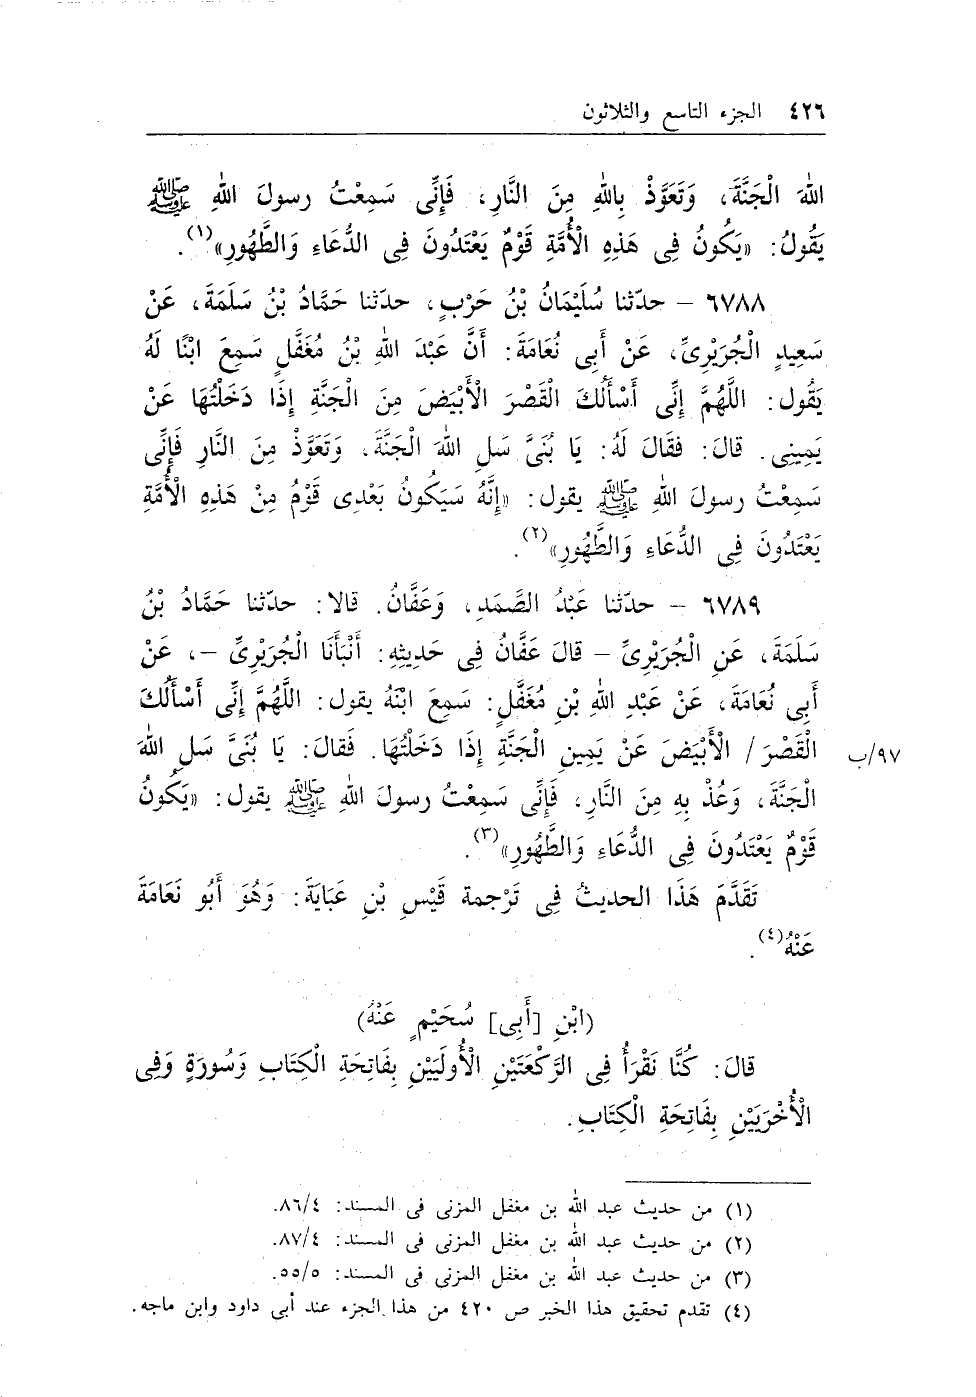 ٤٢٦ الجزء التاسع والثلاثون
اللهَ الْجَنَّةَ، وَتَعَوَّذْ بِاللهِ مِنَ النَّارِ، فَإِنِّى سَمِعْتُ رسولَ اللهِ ﷺ
يَقُولُ: «يَكُونُ فِى هَذِهِ الْأُمَّةِ قَوْمٌ يَعْتَدُونَ فِى الدُّعَاءِ وَالطَّهُورِ»(١).
٦٧٨٨ – حدّثنا سُلَيْمَانُ بْنُ حَرْبٍ، حدّثنا حَمَّادُ بْنُ سَلَمَةَ، عَنْ
سَعِيدٍ الْجُرَيْرِىِّ، عَنْ أَبِى نُعَامَةَ: أَنَّ عَبْدَ اللهِ بْنُ مُغَفَّلٍ سَمِعَ ابْنًا لَهُ
يَقُول: اللَّهُمَّ إِنِّى أَسْأَلُكَ الْقَصْرَ الْأَبْيَضَ مِنَ الْجَنَّةِ إِذَا دَخَلْتُهَا عَنْ
يَمِينِى. قَالَ: فَقَالَ لَهُ: يَا بُنَىَّ سَلِ اللهَ الْجَنَّةَ، وَتَعَوَّذْ مِنَ النَّارِ فَإِنِّى
سَمِعْتُ رسولَ اللهِ ﷺ يقول: «إِنَّهُ سَيَكُونُ بَعْدِى قَوْمٌ مِنْ هَذِهِ الْأُمَّةِ
يَعْتَدُونَ فِى الدُّعَاءِ وَالطَّهُورِ»(٢).
٦٧٨٩ – حدّثنا عَبْدُ الصَّمَدِ، وَعَفَّانُ. قالا: حدّثنا حَمَّادُ بْنُ
سَلَمَةَ، عَنِ الْجُرَيْرِىِّ – قَالَ عَفَّانُ فِى حَدِيثِهِ: أَنْبَأَنَا الْجُرَيْرِىِّ –، عَنْ
أَبِى نُعَامَةَ، عَنْ عَبْدِ اللهِ بْنِ مُغَفَّلٍ: سَمِعَ ابْنَهُ يقول: اللَّهُمَّ إِنِّى أَسْأَلُكَ
الْقَصْرَ / الْأَبْيَضَ عَنْ يَمِينِ الْجَنَّةِ إِذَا دَخَلْتُهَا. فَقالَ: يَا بُنَىَّ سَلِ اللهَ
٩٧/ب
الْجَنَّةَ، وَعُذْ بِهِ مِنَ النَّارِ، فَإِنِّى سَمِعْتُ رسولَ اللهِ ﷺ يقول: «يَكُونُ
قَوْمٌ يَعْتَدُونَ فِى الدُّعَاءِ وَالطَّهُورِ»(٣).
تَقَدَّمَ هَذَا الحديثُ فِى تَرْجمة قَيْسِ بْنِ عَبَايَةَ: وَهُوَ أَبُو نَعَامَةَ
عَنْهُ(٤).
(ابْنِ [أَبِى] سُحَيْمٍ عَنْهُ)
قَالَ: كُنَّا نَقْرَأُ فِى الرَّكْعَتَيْنِ الْأُولَيَيْنِ بِفَاتِحَةِ الْكِتَابِ وَسُورَةٍ وَفِى
الْأُخْرَيَيْنِ بِفَاتِحَةِ الْكِتَابِ.
(١) من حديث عبد الله بن مغفل المزنى فى المسند: ٨٦/٤.
(٢) من حديث عبد الله بن مغفل المزنى فى المسند: ٨٧/٤.
(٣) من حديث عبد الله بن مغفل المزنى فى المسند: ٥٥/٥.
(٤) تقدم تحقيق هذا الخبر ص ٤٢٠ من هذا الجزء عند أبي داود وابن ماجه.